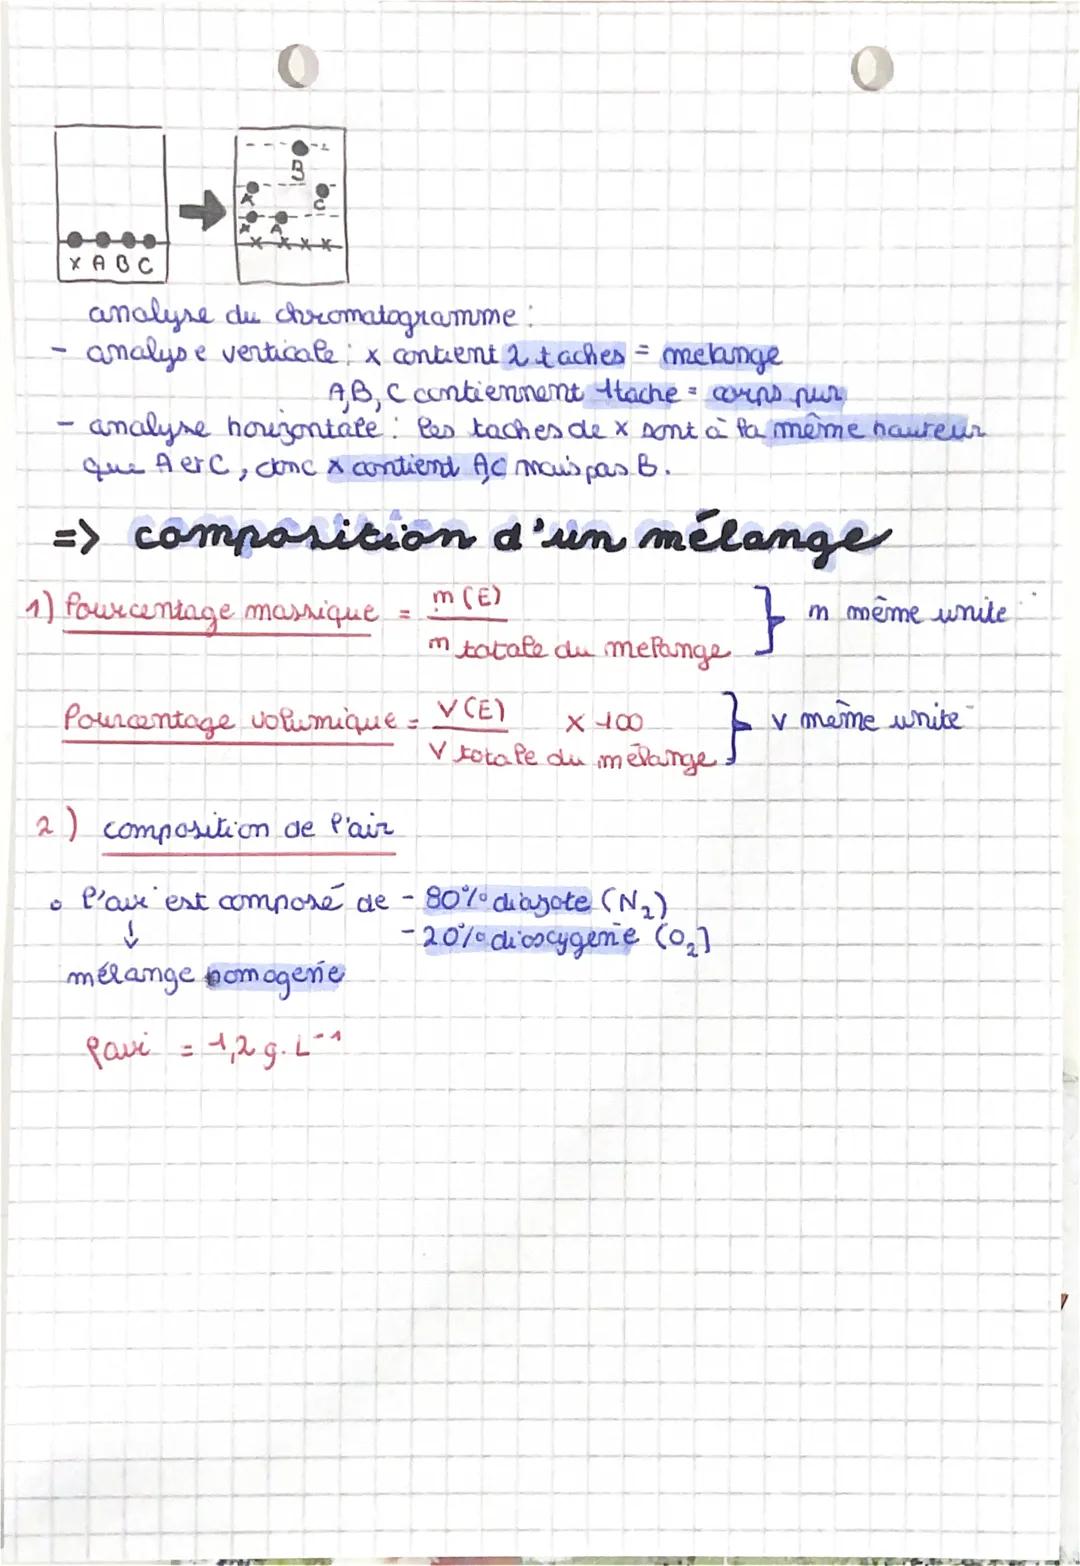 B
X C
X A
X X X X
X A B C
analyse du chromatogramme :
- analyse verticale : x contient 2 taches = melange
A, B, C contiennent 1 tache = corps pur
- analyse horizontale : les taches de x sont à la même hauteur
que A et C, donc x contient A, C mais pas B.
=> composition d'un mélange
1) Pourcentage massique = m (E) } m même unite
m totale du melange
Pourcentage volumique = V (E) x 100 } v même unite
V totale du mélange
2) composition de l'air
• l'air est composé de - 80% diazote (N2)
- 20% dioxygene (O2]
mélange homogene
ρair = 1,2 g. L-1